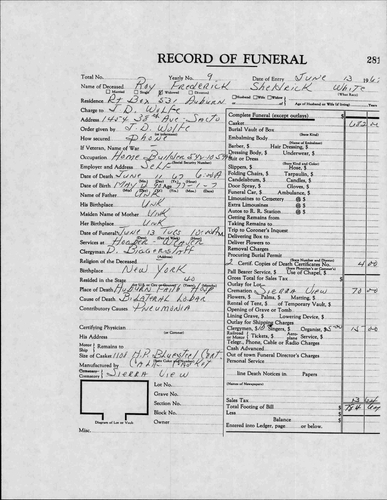 281
RECORD OF FUNERAL
Total No. Yearly No. 9 Date of Entry JUNE 13 196
Name of Deceased Roy Frederick Sheldrick White
Married Single Widowed Divorced Husband Wife Widow (What Race)
Residence Rt Box 531 Auburn or Age of Husband or Wife (if living) Years
Charge to J. D. Wolfe
Address 1454 38th Ave - Sacto
Order given by J. D. Wolfe
How secured Phone
If Veteran, Name of War
Occupation Home Builder
Employer and Address Self
Date of Death June 11 67 6:
Date of Birth May 4 90 77-1-7
Name of Father Unk
His Birthplace Unk
Maiden Name of Mother Unk
Her Birthplace Unk
Date of Funeral June 13 Tues 10:
Services at Hooper-Weaver
Clergyman D. Biggerstaff
Religion of the Deceased
Birthplace New York
Resided in the State 40
Place of Death Auburn Faith Hosp
Cause of Death Bilateral Lobar
Contributory Causes Pneumonia
Certifying Physician
His Address
Remains to
Ship
Size of Casket 1101
Manufactured by
Cemetery
Crematory Sierra View
Lot No.
Grave No.
Section No.
Block No.
Diagram of Lot or Vault Owner
Misc.
Complete Funeral (except outlays) $
Casket
Burial Vault of Box
(State Kind)
Embalming Body
(Name of Embalmer)
Barber, $ Hair Dressing, $
Dressing Body, $ Underwear, $
Suit or Dress
(State Kind and Color)
Slippers, $ Hose, $
Folding Chairs, $ Tarpaulin, $
Candelabrum, $ Candles, $
Door Spray, $ Gloves, $
Funeral Car, $ Ambulance, $
Limousines to Cemetery @ $
Extra Limousines @ $
Autos to R. R. Station @ $
Getting Remains from
Taking Remains to
Trip to Coroner's Inquest
Delivering Box to
Deliver Flowers to
Removal Charges
Procuring Burial Permit
2 Certif. Copies of Death Certificates No. 4 00
Pall Bearer Service, $ Use of Chapel, $
Gross Total for Sales Tax $
Outlay for Lot
Cremation Sierra View 70 00
Flowers, $ Palms, $ Matting, $
Rental of Tent, $ of Temporary Vault, $
Opening of Grave or Tomb, $
Lining Grave, $ Lowering Device, $
Outlay for Shipping Charges
Clergymen, $10 Singers, $ Organist, $5.00 15 00
Tickets, $ Aeroplane Service, $
Telegr., Phone, Cable or Radio Charges
Cash Advanced
Out of town Funeral Director's Charges
Personal Service
line Death Notices in Papers
(Names of Newspapers)
Sales Tax
Total Footing of Bill $
Less $
Balance $
Entered into Ledger, page or below.